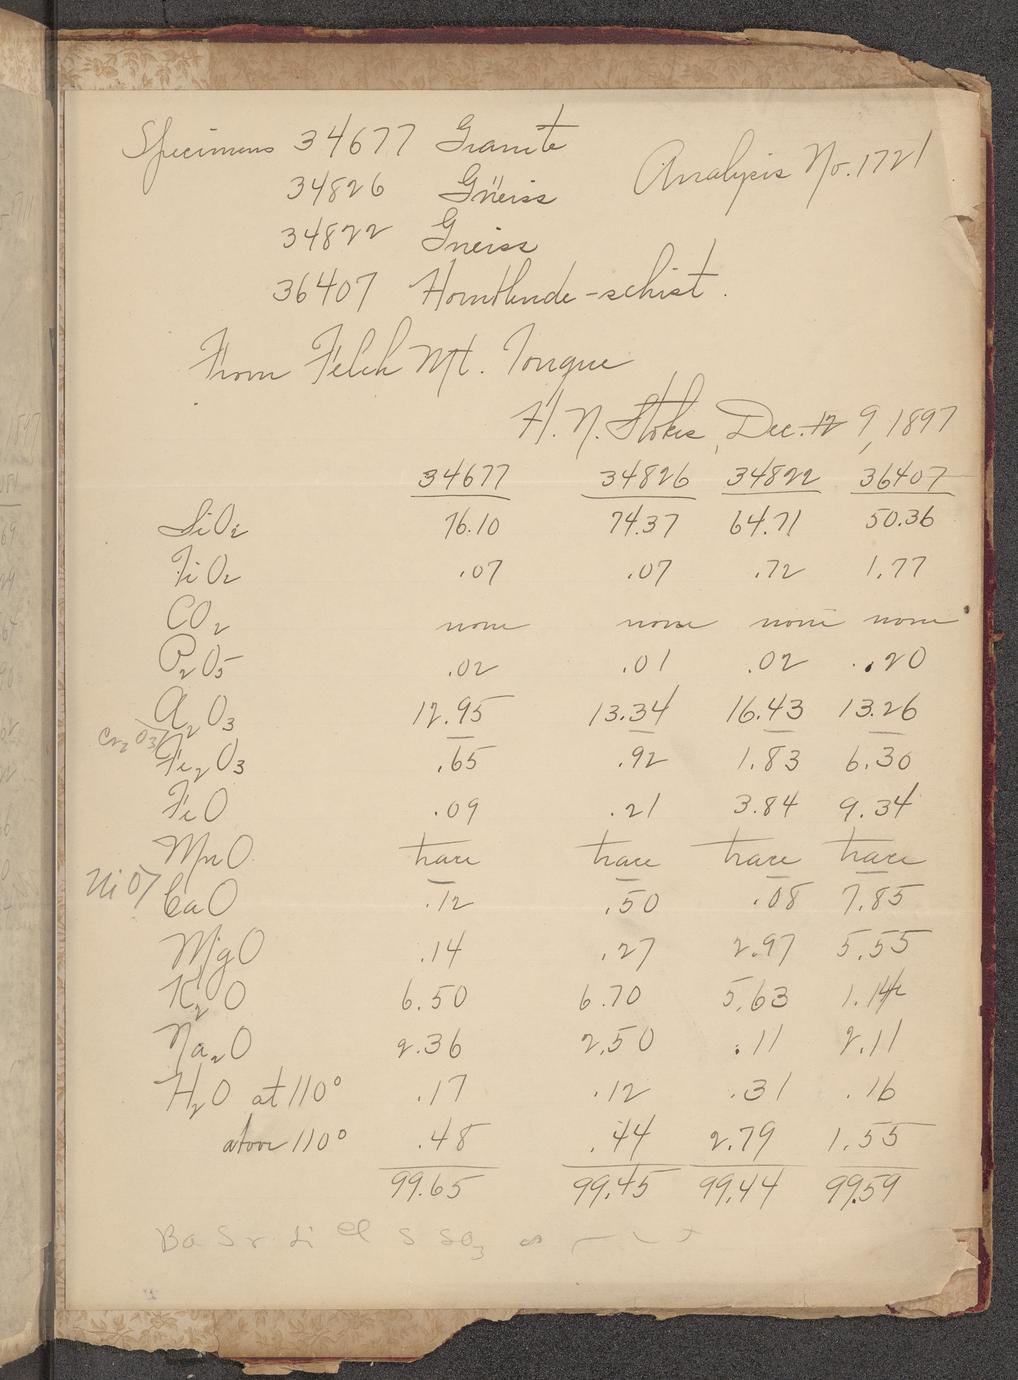 Specimens 34677 Granite
Analysis No. 1721
34826 Gneiss
34822 Gneiss
36407 Hornblende-schist.
From Felch Mt. Tongue
H. N. Stokes, Dec. 12 9, 1897
34677 34826 34822 36407
SiO2 76.10 74.37 64.71 50.36
TiO2 .07 .07 .72 1.77
CO2 none none none none
P2O5 .02 .01 .02 .20
Al2O3 12.95 13.34 16.43 13.26
Cr2O3
Fe2O3 .65 .92 1.83 6.30
FeO .09 .21 3.84 9.34
MnO trace trace trace trace
NiO
CaO .12 .50 .08 7.85
MgO .14 .27 2.97 5.55
K2O 6.50 6.70 5.63 1.14
Na2O 2.36 2.50 .11 2.11
H2O at 110° .17 .12 .31 .16
above 110° .48 .44 2.79 1.55
99.65 99.45 99.44 99.59
Ba Sr Li Cl S SO3